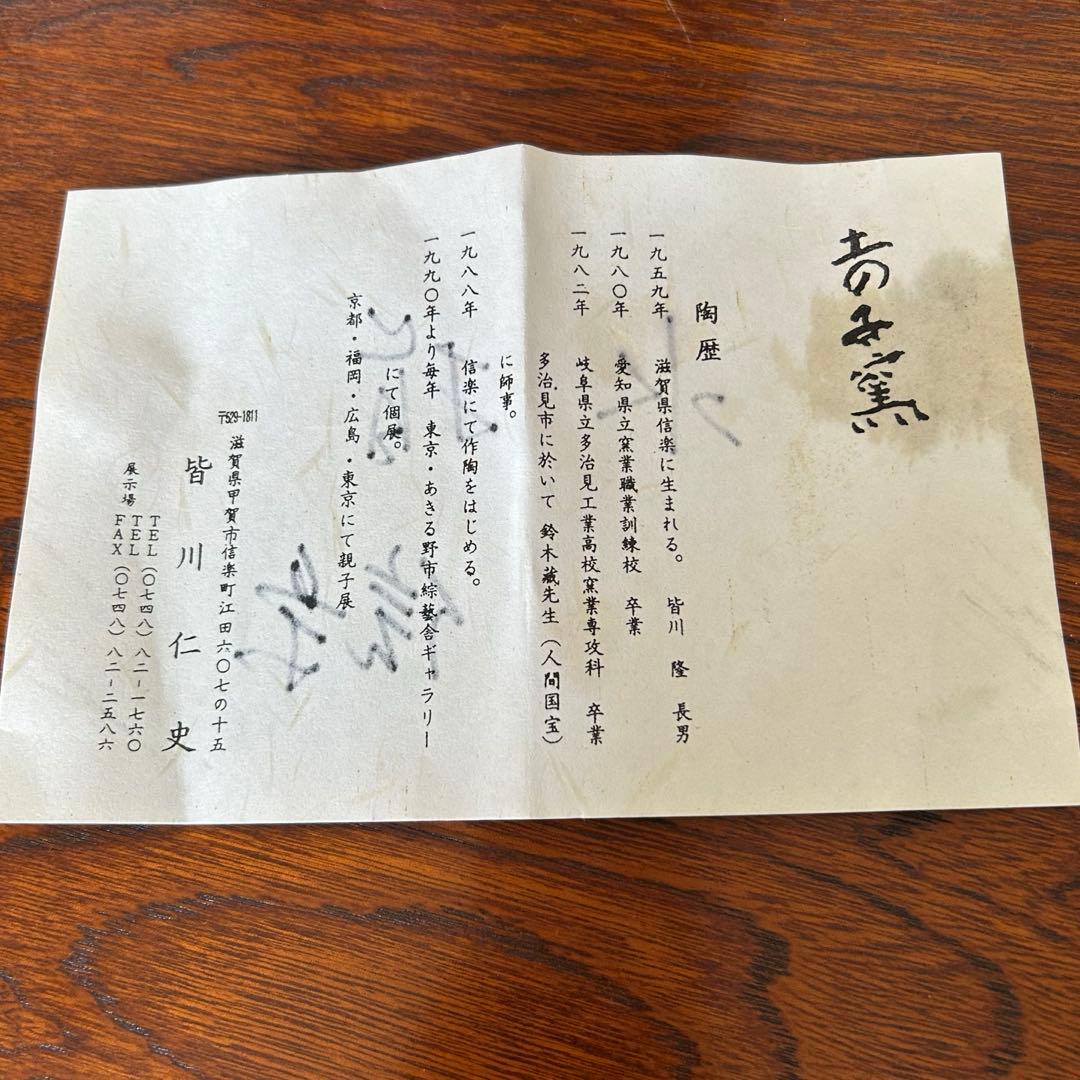 土の子窯
陶歴
一九五九年 滋賀県信楽に生まれる。 皆川 隆 長男
一九八〇年 愛知県立窯業職業訓練校 卒業
一九八二年 岐阜県立多治見工業高校窯業専攻科 卒業
多治見市に於いて 鈴木藏先生（人間国宝）
に師事。
一九八八年 信楽にて作陶をはじめる。
一九九〇年より毎年 東京・あきる野市綜藝舎ギャラリー
にて個展。
京都・福岡・広島・東京にて親子展
〒529-1811
滋賀県甲賀市信楽町江田六〇七の十五
皆川仁史
TEL（〇七四八）八二-一七六〇
展示場 TEL（〇七四八）八二-一七六〇
FAX（〇七四八）八二-二五八六